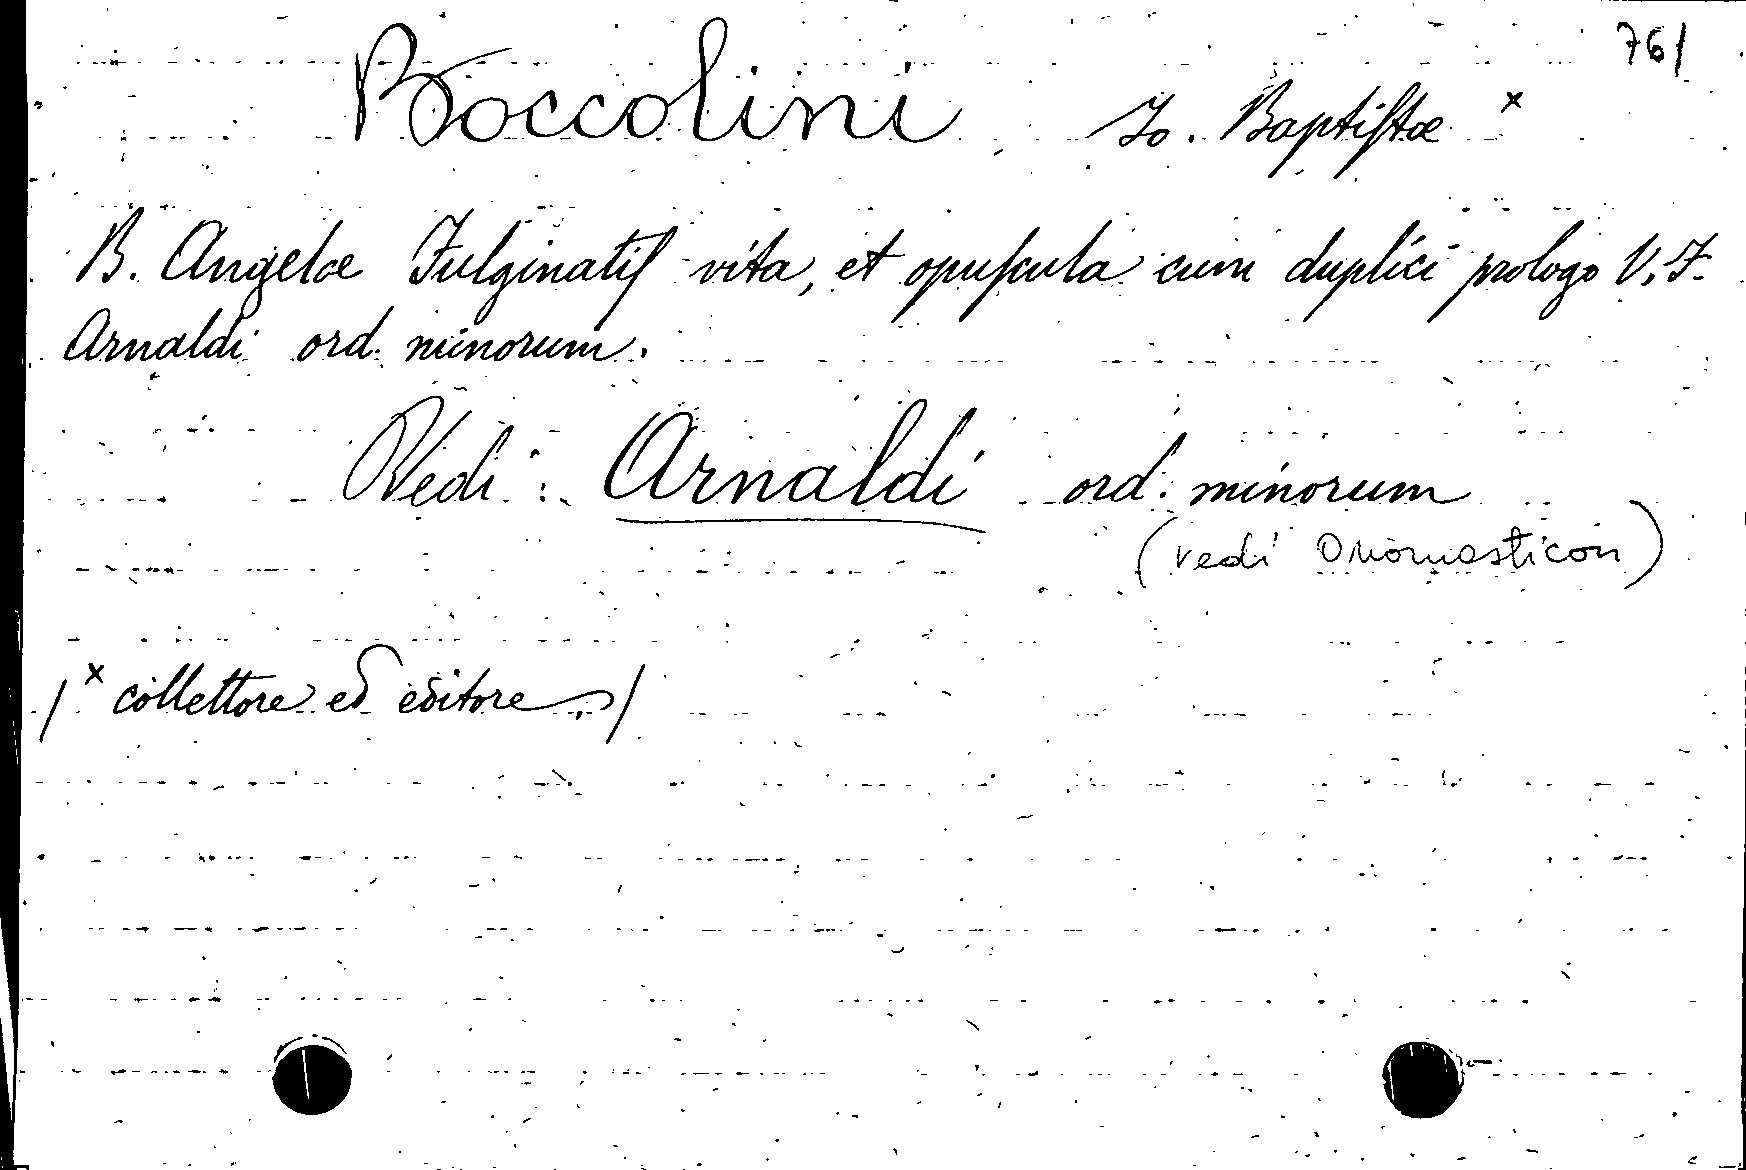 761
Boccolini Jo. Baptiſtæ ×
B. Angelæ Fulginatiſ vita, et opuſcula cum duplici prologo V. F.
Arnaldi ord. minorum.
Vedi: Arnaldi ord. minorum
(vedi Onomasticon)
/× collettore ed editore./